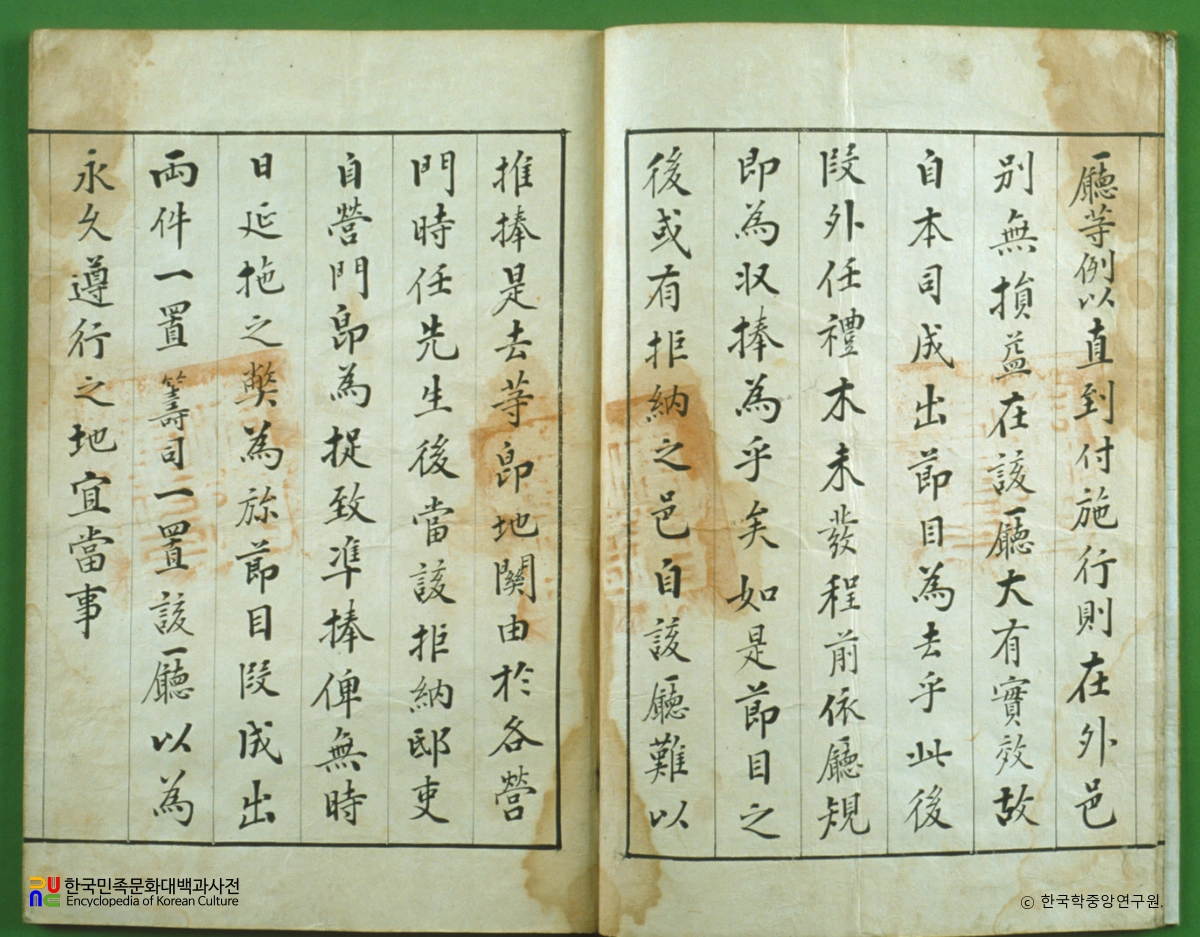 廳等例以直到付施行則在外邑
別無損益在該廳大有實效故
自本司成出節目為去乎此後
段外任禮木未發程前依廳規
即為收捧為乎矣如是節目之
後或有拒納之邑自該廳難以
推捧是去等即地關由於各營
門時任先生後當該拒納邸吏
自營門即為捉致準捧俾無時
日延拖之弊為旀節目段成出
両件一置籌司一置該廳以為
永久遵行之地宜當事
한국민족문화대백과사전
Encyclopedia of Korean Culture
ⓒ 한국학중앙연구원.